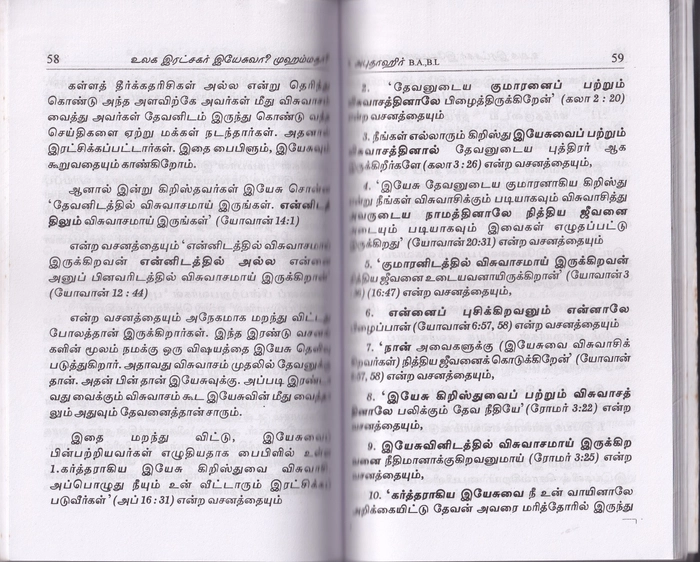 58 உலக இரட்சகர் இயேசுவா? முஹம்மதா?
கள்ளத் தீர்க்கதரிசிகள் அல்ல என்று தெரிந்து
கொண்டு அந்த அளவிற்கே அவர்கள் மீது
வைத்து அவர்கள் தேவனிடம் இருந்து கொண்டு
செய்திகளை ஏற்று மக்கள் நடந்தார்கள்.
இரட்சிக்கப்பட்டார்கள். இதை பைபிளும்,
கூறுவதையும் காண்கிறோம்.
ஆனால் இன்று கிறிஸ்தவர்கள் இயேசு
'தேவனிடத்தில் விசுவாசமாய் இருங்கள்.
திலும் விசுவாசமாய் இருங்கள்' (யோவான் 14:1)
என்ற வசனத்தையும் 'என்னிடத்தில்
இருக்கிறவன் என்னிடத்தில் அல்ல என்னை
அனுப்பினவரிடத்தில் விசுவாசமாய் இருக்கிறான்
(யோவான் 12 : 44)
என்ற வசனத்தையும் அநேகமாக மறந்து
போலத்தான் இருக்கிறார்கள். இந்த இரண்டு
களின் மூலம் நமக்கு ஒரு விஷயத்தை இயேசு
படுத்துகிறார். அதாவது விசுவாசம் முதலில்
தான். அதன் பின் தான் இயேசுவுக்கு. அப்படி
வது வைக்கும் விசுவாசம் கூட இயேசுவின் மீது
லும் அதுவும் தேவனைத்தான் சாரும்.
இதை மறந்து விட்டு,
பின்பற்றியவர்கள் எழுதியதாக பைபிளில்
1.கர்த்தராகிய இயேசு கிறிஸ்துவை
அப்பொழுது நீயும் உன் வீட்டாரும்
படுவீர்கள்' (அப் 16 : 31) என்ற வசனத்தையும்
அபுதாஹிர் B.A,B.L 59
2. 'தேவனுடைய குமாரனைப் பற்றும்
விசுவாசத்தினாலே பிழைத்திருக்கிறேன்' (கலா 2 : 20)
என்ற வசனத்தையும்
3. நீங்கள் எல்லாரும் கிறிஸ்து இயேசுவைப் பற்றும்
விசுவாசத்தினால் தேவனுடைய புத்திரர் ஆக
இருக்கிறீர்களே (கலா 3 : 26) என்ற வசனத்தையும்,
4. 'இயேசு தேவனுடைய குமாரனாகிய கிறிஸ்து
என்று நீங்கள் விசுவாசிக்கும் படியாகவும் விசுவாசித்து
அவருடைய நாமத்தினாலே நித்திய ஜீவனை
அடையும் படியாகவும் இவைகள் எழுதப்பட்டு
இருக்கிறது' (யோவான் 20:31) என்ற வசனத்தையும்
5. 'குமாரனிடத்தில் விசுவாசமாய் இருக்கிறவன்
நித்திய ஜீவனை உடையவனாயிருக்கிறான்' (யோவான் 3
(16:47) என்ற வசனத்தையும்,
6. என்னைப் புசிக்கிறவனும் என்னாலே
பிழைப்பான் (யோவான் 6:57, 58) என்ற வசனத்தையும்,
7. 'நான் அவைகளுக்கு (இயேசுவை விசுவாசிக்
கிறவர்கள்) நித்திய ஜீவனைக் கொடுக்கிறேன்' (யோவான்
58) என்ற வசனத்தையும்,
8. 'இயேசு கிறிஸ்துவைப் பற்றும் விசுவாசத்
தினாலே பலிக்கும் தேவ நீதியே' (ரோமர் 3:22) என்ற
வசனத்தையும்,
9. இயேசுவினிடத்தில் விசுவாசமாய் இருக்கிற
வனை நீதிமானாக்குகிறவனுமாய் (ரோமர் 3:25) என்ற
வசனத்தையும்,
10. 'கர்த்தராகிய இயேசுவை நீ உன் வாயினாலே
அறிக்கையிட்டு தேவன் அவரை மரித்தோரில் இருந்து